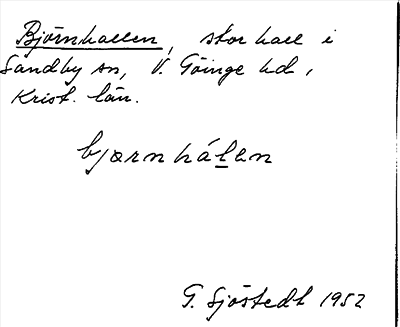 Björnhallen, stor hall i
Sandby sn, V. Göinge hd,
Krist. län.
bjœrnháḻen
G. Sjöstedt 1952